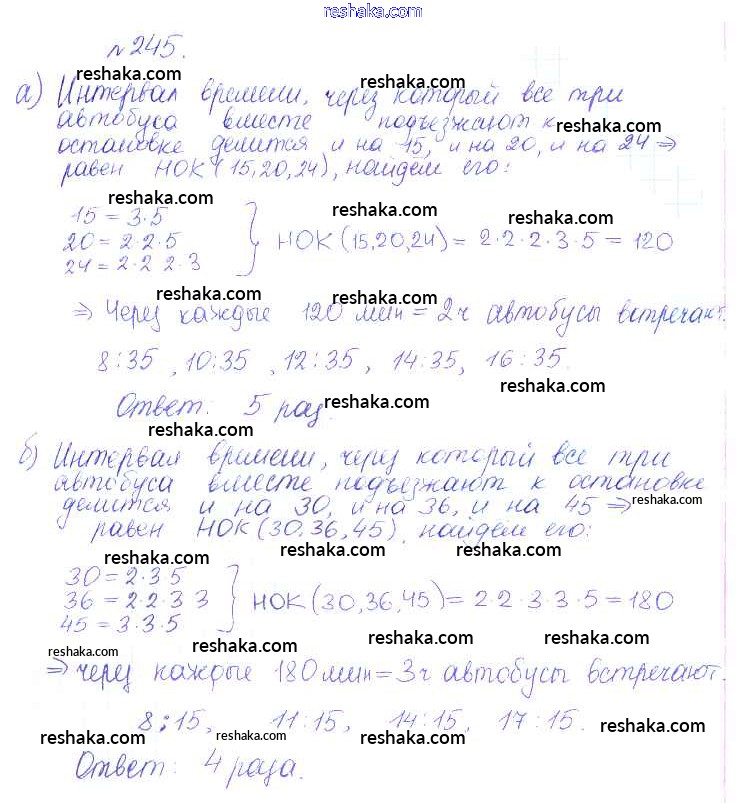 reshaka.com
№ 245.
reshaka.com reshaka.com
а) Интервал времени, через который все три
автобуса вместе подъезжают к reshaka.com
остановке делится и на 15, и на 20, и на 24 ⇒
reshaka.com reshaka.com
равен НОК (15,20,24), найдём его:
reshaka.com reshaka.com reshaka.com
15 = 3·5
20 = 2·2·5 } НОК (15,20,24) = 2·2·2·3·5 = 120
24 = 2·2 2·3
reshaka.com reshaka.com
⇒ Через каждые 120 мин = 2ч автобусы встречают.
8:35, 10:35, 12:35, 14:35, 16:35.
reshaka.com reshaka.com reshaka.com
Ответ: 5 раз. reshaka.com
reshaka.com
б) Интервал времени, через который все три
автобуса вместе подъезжают к остановке
делится и на 30, и на 36, и на 45 ⇒ reshaka.com
равен НОК (30,36,45) найдём его:
reshaka.com reshaka.com reshaka.com
30 = 2·3 5
36 = 2·2·3 3 } НОК (30,36,45) = 2·2·3·3·5 = 180
45 = 3·3·5
reshaka.com reshaka.com reshaka.com
⇒ через каждые 180 мин = 3ч автобусы встречают.
8:15, 11:15, 14:15, 17:15. reshaka.com
reshaka.com reshaka.com reshaka.com reshaka.com
Ответ: 4 раза.